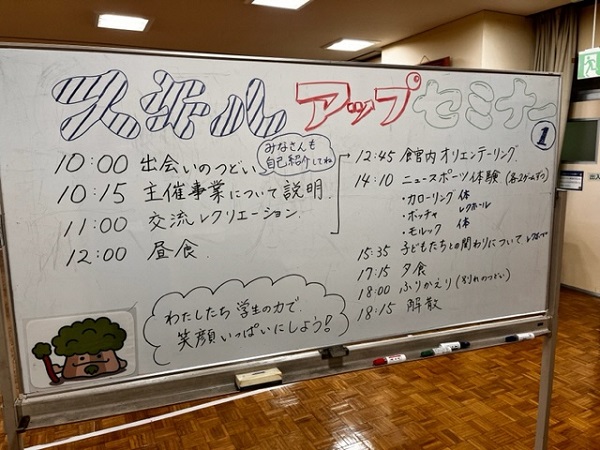 スキル アップ セミナー ①
10:00 出会いのつどい
みなさんも
自己紹介してね
10:15 主催事業について説明.
11:00 交流レクリエーション.
12:00 昼食.
12:45 館内オリエンテーリング.
14:10 ニュースポーツ体験 (各2ゲームずつ)
・カローリング 体
・ボッチャ レクホール
・モルック 体
15:35 子どもたちとの関わりについて
17:15 夕食
18:00 ふりかえり (別れのつどい)
18:15 解散
わたしたち学生の力で、
笑顔いっぱいにしよう!